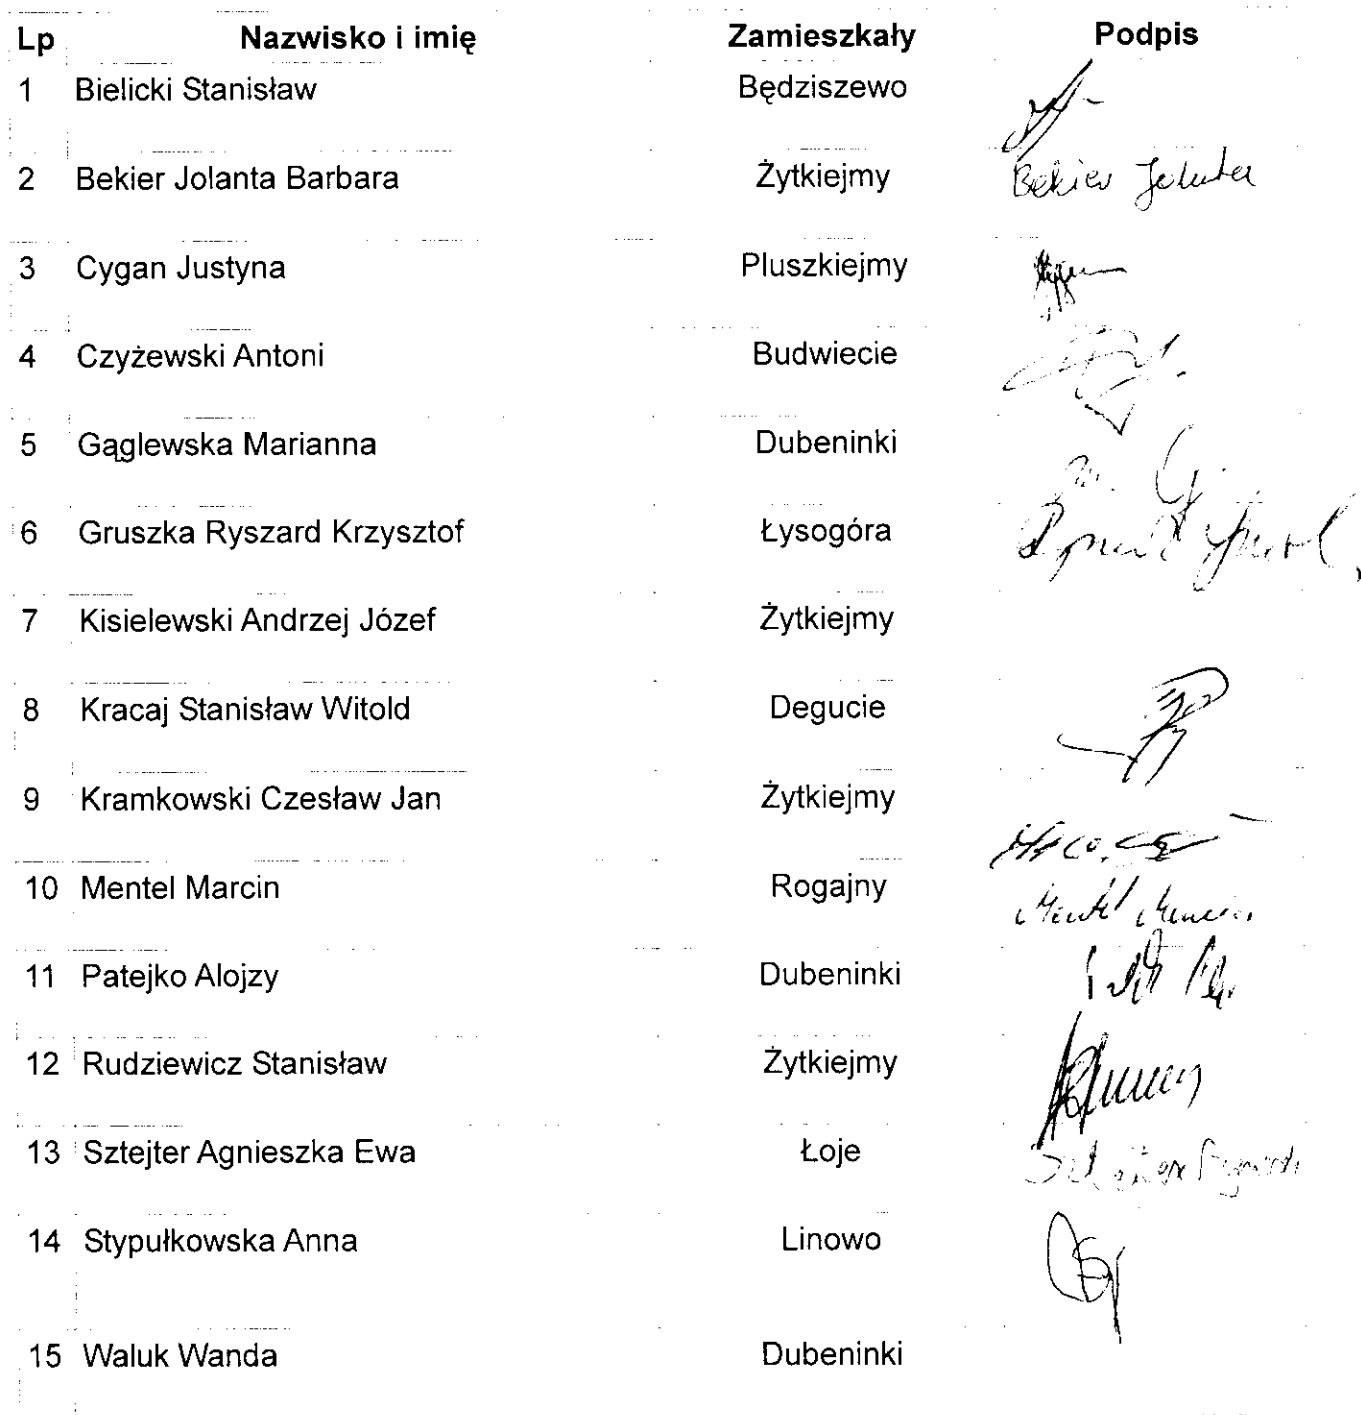 Lp Nazwisko i imię Zamieszkały Podpis
1 Bielicki Stanisław Będziszewo
2 Bekier Jolanta Barbara Żytkiejmy Bekier Jolanta
3 Cygan Justyna Pluszkiejmy
4 Czyżewski Antoni Budwiecie
5 Gąglewska Marianna Dubeninki
6 Gruszka Ryszard Krzysztof Łysogóra
7 Kisielewski Andrzej Józef Żytkiejmy
8 Kracaj Stanisław Witold Degucie
9 Kramkowski Czesław Jan Żytkiejmy
10 Mentel Marcin Rogajny Mentel Marcin
11 Patejko Alojzy Dubeninki
12 Rudziewicz Stanisław Żytkiejmy
13 Sztejter Agnieszka Ewa Łoje
14 Stypułkowska Anna Linowo
15 Waluk Wanda Dubeninki